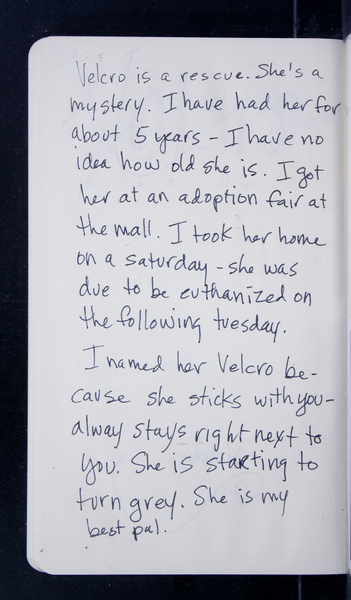 Velcro is a rescue. She's a
mystery. I have had her for
about 5 years - I have no
idea how old she is. I got
her at an adoption fair at
the mall. I took her home
on a saturday - she was
due to be euthanized on
the following tuesday.
I named her Velcro be-
cause she sticks with you-
alway stays right next to
you. She is starting to
turn grey. She is my
best pal.